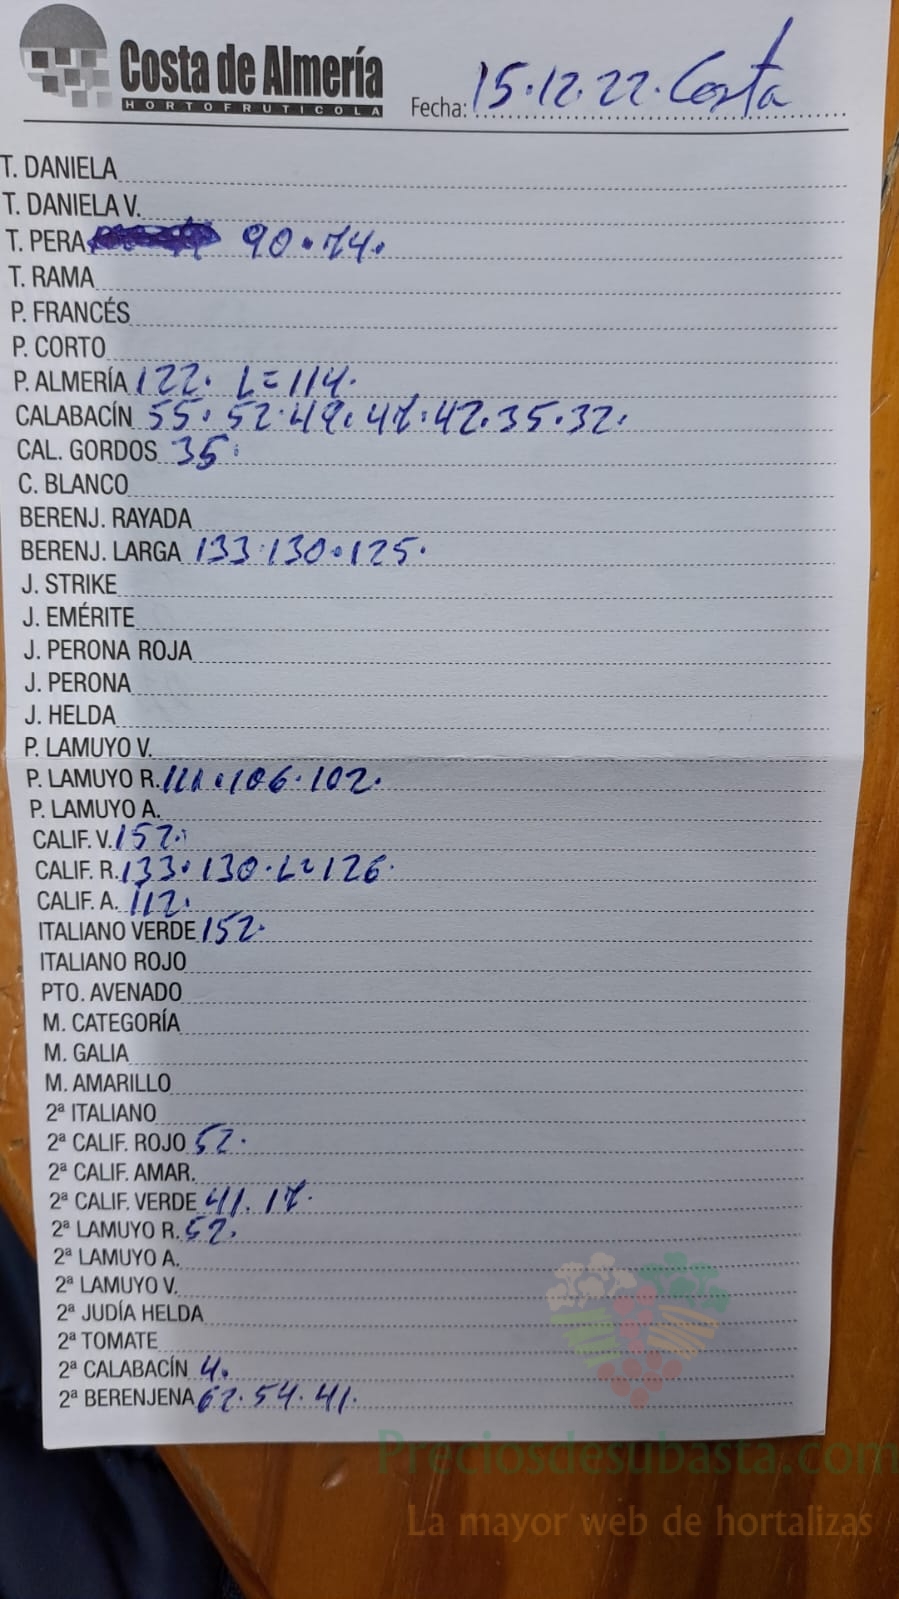 Costa de Almería
HORTOFRUTICOLA
Fecha: 15.12.22. Costa
T. DANIELA
T. DANIELA V.
T. PERA 90.74.
T. RAMA
P. FRANCÉS
P. CORTO
P. ALMERÍA 122. L=114.
CALABACÍN 55. 52.49.47.42.35.32.
CAL. GORDOS 35.
C. BLANCO
BERENJ. RAYADA
BERENJ. LARGA 133.130.125.
J. STRIKE
J. EMÉRITE
J. PERONA ROJA
J. PERONA
J. HELDA
P. LAMUYO V.
P. LAMUYO R. 111.106.102.
P. LAMUYO A.
CALIF. V. 152.
CALIF. R. 133.130.L=126.
CALIF. A. 112.
ITALIANO VERDE 152.
ITALIANO ROJO
PTO. AVENADO
M. CATEGORÍA
M. GALIA
M. AMARILLO
2ª ITALIANO
2ª CALIF. ROJO 52.
2ª CALIF. AMAR.
2ª CALIF. VERDE 41.17.
2ª LAMUYO R. 52.
2ª LAMUYO A.
2ª LAMUYO V.
2ª JUDÍA HELDA
2ª TOMATE
2ª CALABACÍN 4.
2ª BERENJENA 62.54.41.
Preciosdesubasta.com
La mayor web de hortalizas